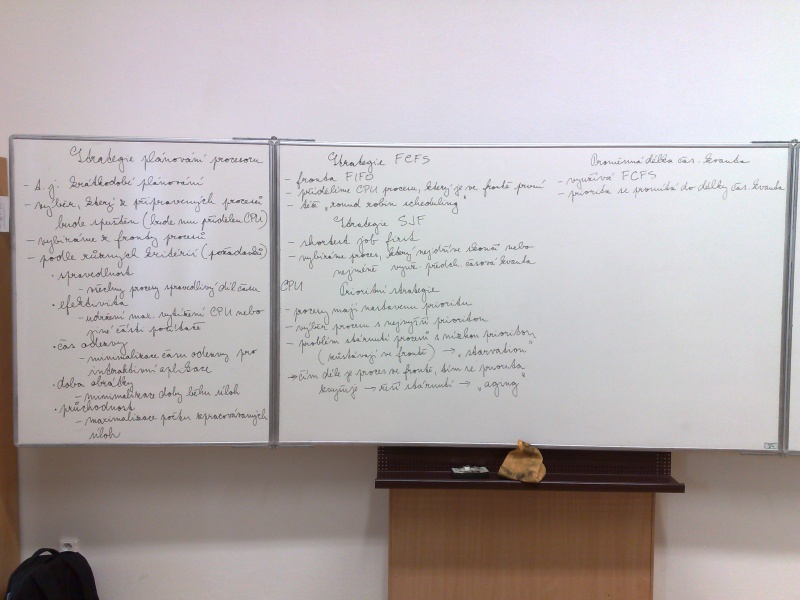 Strategie plánování procesoru
- t. j. krátkodobé plánování
- výběr, který z připravených procesů
bude spuštěn (bude mu přidělen CPU)
- vybíráme z fronty procesů
- podle různých kritérií (požadavků)
• spravedlnost
- všechny procesy spravedlivý díl času
• efektivita
- udržení max. vytížení CPU nebo
jiné části počítače
• čas odezvy
- minimalizace času odezvy pro
interaktivní aplikace
• doba obrátky
- minimalizace doby běhu úloh
• průchodnost
- maximalizace počtu zpracovávaných
úloh
Strategie FCFS
- fronta FIFO
- přidělíme CPU procesu, který je ve frontě první
- též „round robin scheduling"
Strategie SJF
- shortest job first
- vybíráme proces, který nejdříve skončí nebo
nejméně využ. předch. časová kvanta
CPU Prioritní strategie
- procesy mají nastavenu prioritu
- výběr procesu s nejvyšší prioritou
- problém stárnutí procesů s nízkou prioritou
(zůstávají ve frontě) → „starvation"
→ čím déle je proces ve frontě, tím se priorita
zvyšuje → řeší stárnutí → „aging"
Proměnná délka čas. kvanta
- využívá FCFS
- priorita se promítá do délky čas. kvanta